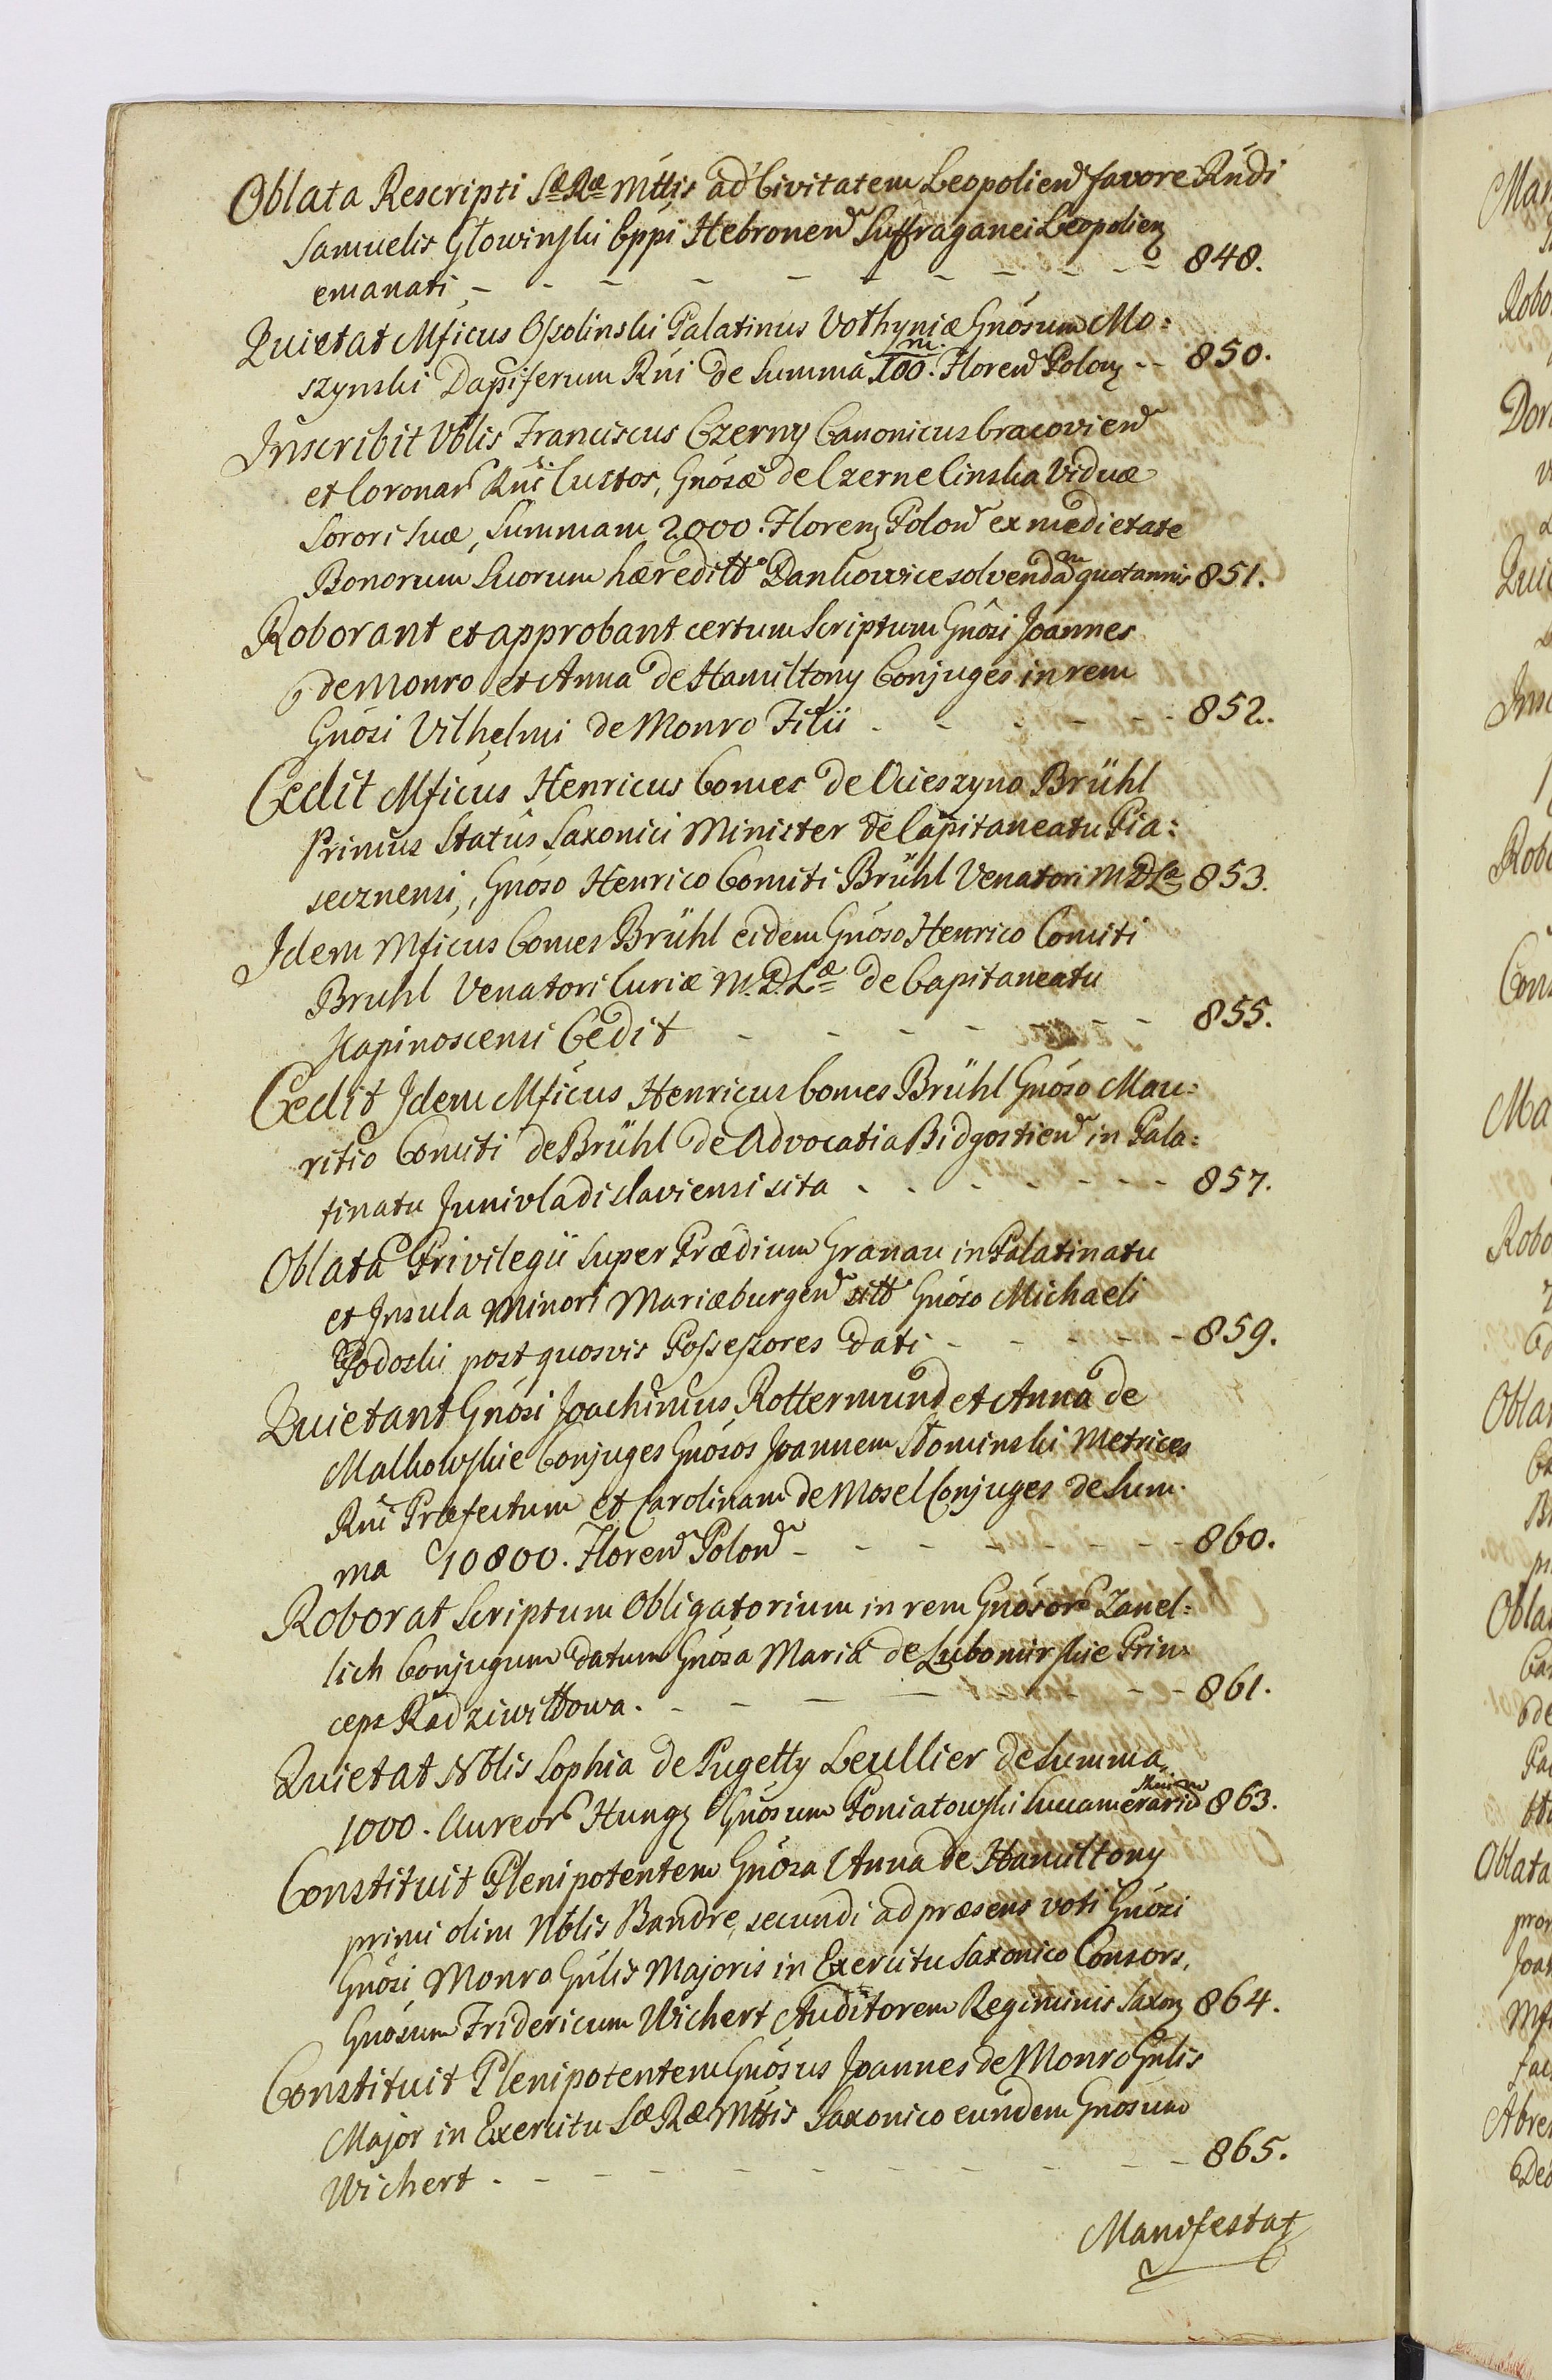 Oblata Rescripti Sæ Ræ Mttis ad Civitatem Leopolien favore Rndi
Samuelis Głowinski Eppi Hebronen Suffraganei Leopolien
emanati - - - - - - - - - 848.
Quietat Mficus Ossolinski Palatinus Volhyniæ Gnosum Mo:
szynski Dapiferum Rni de Summa 100.m Floren Polon -- 850.
Inscribit Vblis Franciscus Czerny Canonicus Cracovien
et Coronar Rni Custos, Gnosæ de Czerne Cinska Viduæ
Sorori Suæ, Summam 2000. Floren Polon ex medietate
Bonorum Suorum hæreditt Dankowice solvendam quotannis 851.
Roborant et approbant certum Scriptum Gnosi Joannes
de Monro et Anna de Hamiltony Conjuges in rem
Gnosi Vilhelmi de Monro Filii - - - - - - 852.
Cedit Mficus Henricus Comes de Ocieszyno Brühl
Primus Status Saxonici Minister de Capitaneatu Pia:
secznensi, Gnoso Henrico Comiti Brühl Venatori M D Læ 853.
Idem Mficus Comes Brühl eidem Gnoso Henrico Comiti
Bruhl Venatori Curiæ M. D. Læ de Capitaneatu
Kapinoscensi Cedit - - - - - - - 855.
Cedit Idem Mficus Henricus Comes Brühl Gnoso Mau:
ritio Comiti de Brühl de Advocatia Bidgostien in Pala:
tinatu Junivladislaviensi sita - - - - - - - 857.
Oblata Privilegii super Prædium Granau in Palatinatu
et Insula Minori Mariæburgen sitt Gnoso Michaeli
Podoski post quosvis Possessores Dati - - - - - 859.
Quietant Gnosi Joachimus Rottermund et Anna de
Malhowskie Conjuges Gnosos Joannem Słominski Metrices
Rni Præfectum et Carolinam de Mosel Conjuges de Sum:
ma 10800. Floren Polon - - - - - - - 860.
Roborat Scriptum Obligatorium in rem Gnosor Zanel:
lich Conjugum datum Gnosa Maria de Lubomirskie Prin:
ceps Radziwiłłowa. - - - - - - - 861.
Quietat Nblis Sophia de Pugetty Leullier de Summa
1000. Aureor Hung Gnosum Poniatowski Succamerarium 863.
Constituit Plenipotentem Gnosa Anna de Hamiltony
primi olim Nblis Bandre, secundi ad præsens voti Gnosi
Gnosi Monro Gnlis Majoris in Exercitu Saxonico Consors,
Gnosum Fridericum Wichert Auditorem Regiminis Saxon 864.
Constituit Plenipotentem Gnosus Joannes de Monro Gnlis
Major in Exercitu Sæ Ræ Mttis Saxonico eundem Gnosum
Wichert - - - - - - - - - - 865.
Manifestat